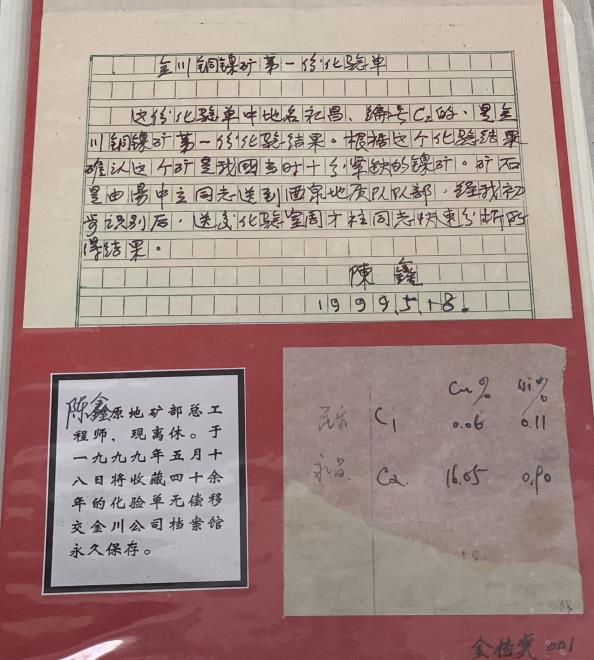 金川铜镍矿第一份化验单
这份化验单中地名永昌、编号C2的，是金
川铜镍矿第一份化验结果。根据这个化验结果
确认这个矿是我国当时十分紧缺的镍矿。矿石
是由汤中立同志送到酒泉地质队队部，经我初
步识别后，送交化验室周才柱同志快速分析所
得结果。
陳鑫
1999.5.18.
陈鑫原地矿部总工
程师，现离休。于
一九九九年五月十
八日将收藏四十余
年的化验单无偿移
交金川公司档案馆
永久保存。
Cu% Ni%
民乐 C1 0.06 0.11
永昌 C2 16.05 0.90
金档奖 001